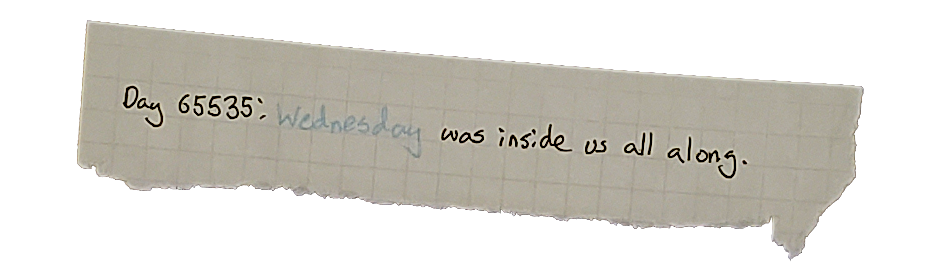 Day 65535: Wednesday was inside us all along.